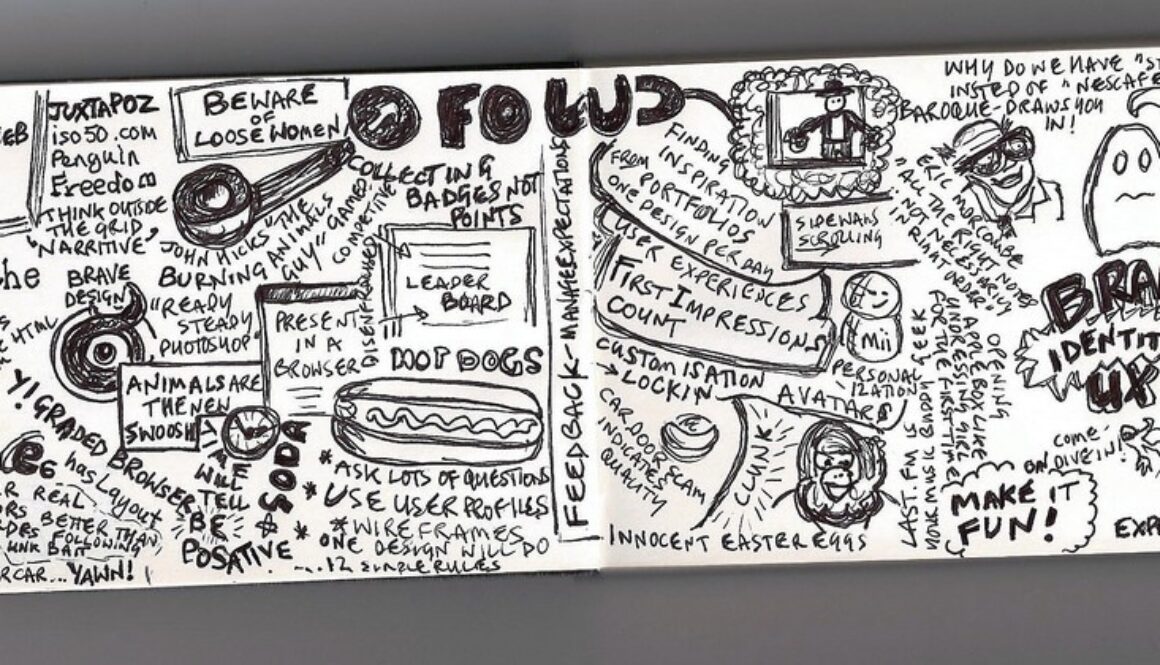 JUXTAPOZ
iso50.com
Penguin
Freedom
THINK OUTSIDE
THE GRID
"NARRITIVE"
BEWARE
OF
LOOSE WOMEN
FOWD
COLLECTING
BADGES NOT
POINTS
JOHN HICKS
"THE
BURNING
ANIMALS
GUY"
GAMES
COMPETITIVE
BRAVE
DESIGN
"READY
STEADY
PHOTOSHOP"
HTML
PRESENT
IN A
BROWSER
LEADER
BOARD
ANIMALS ARE
THE NEW
SWOOSH
HOT DOGS
Y! GRADED BROWSER
has Layout
TIME
WILL
TELL
SODA
BE
POSATIVE
REAL
BETTER THAN
FOLLOWING
... YAWN!
* ASK LOTS OF QUESTIONS
* USE USER PROFILES
* WIREFRAMES
* ONE DESIGN WILL DO
...12 SIMPLE RULES
FEEDBACK - MANAGE EXPECTATIONS
FINDING
INSPIRATION
FROM PORTFOLIOS
ONE DESIGN PER DAY
USER EXPERIENCES
FIRST IMPRESSIONS
COUNT
CUSTOMISATION
→ LOCKIN
CAR DOOR SLAM
INDICATES
QUALITY
CLUNK
INNOCENT EASTER EGGS
SIDEWAYS
SCROLLING
Mii
PERSONAL
IZATION
AVATARS
WHY DO WE HAVE "ST
INSTED OF "NESCAFE
BAROQUE - DRAWS YOU
IN!
ERIC MORCOMBE
"ALL THE RIGHT NOTES
NOT NECESSARILY
IN RIGHT ORDER"
OPENING
APPLE BOX LIKE
UNDRESSING GIRL
FOR THE FIRST TIME
LAST.FM IS
YOUR MUSIC BUDDY GEEK
BRA
IDENTIT
UX
COME
ON DIVE IN!
MAKE IT
FUN!
EXP